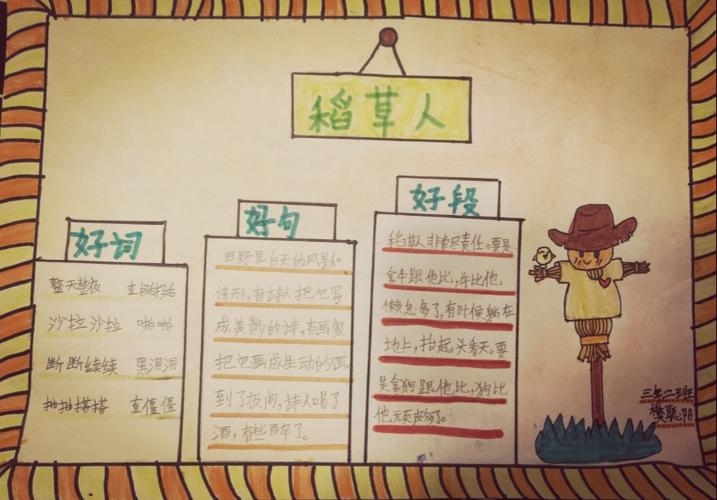 稻草人
好词
整天整夜 直挺挺
沙拉沙拉 啪啪
断断续续 黑洞洞
抽抽搭搭 直僵僵
好句
田野里白天的风景和
情形,有诗人把它写
成美妙的诗,有画家
把它画成生动的画。
到了夜间,诗人喝了
酒,有些醉了。
好段
稻草人非常尽责任。要是
拿牛跟他比,牛比他
懒怠多了,有时候躺在
地上,抬起头看天。要
是拿狗跟他比,狗比
他顽皮多了。
三年二班
聪